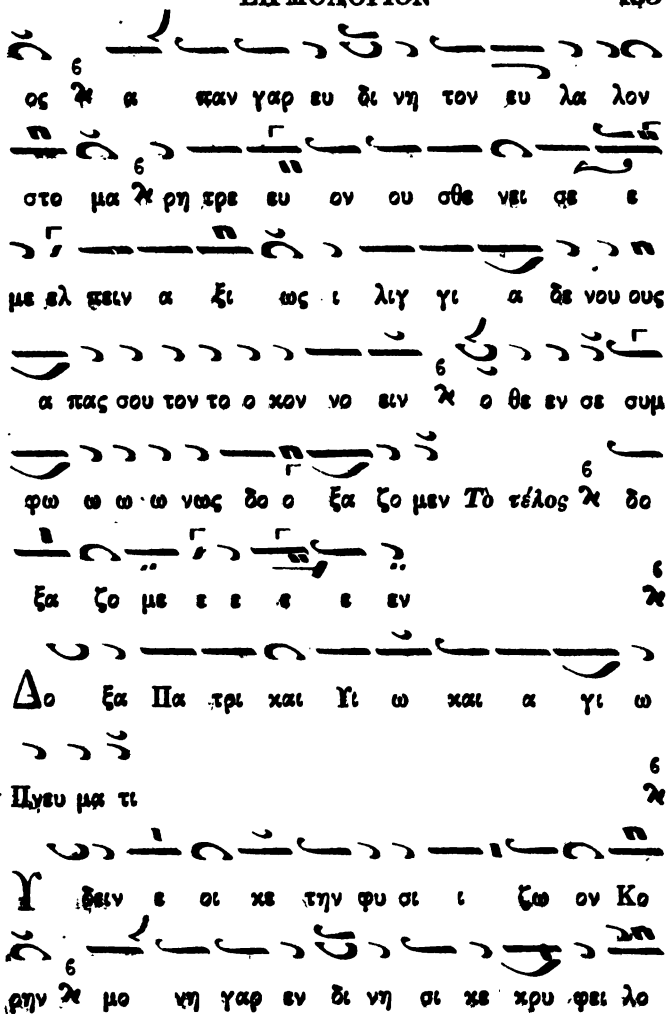 ος α παν γαρ ευ δι νη τον ευ λα λον
στο μα ρη τρε ευ ον ου σθε νει σε ε
με ελ πειν α ξι ως ι λιγ γι α δε νου ους
α πας σου τον το ο κον νο ειν ο θε εν σε συμ
φω ω ω ω νως δο ο ξα ζο μεν Τὸ τέλος δο
ξα ζο με ε ε ε ε εν
Δο ξα Πα τρι και Υι ω και α γι ω
Πνευ μα τι
Υ δειν ε οι κε την φυ σι ι ζω ον Κο
ρην μο νη γαρ εν δι νη σι κε κρυ φει λο